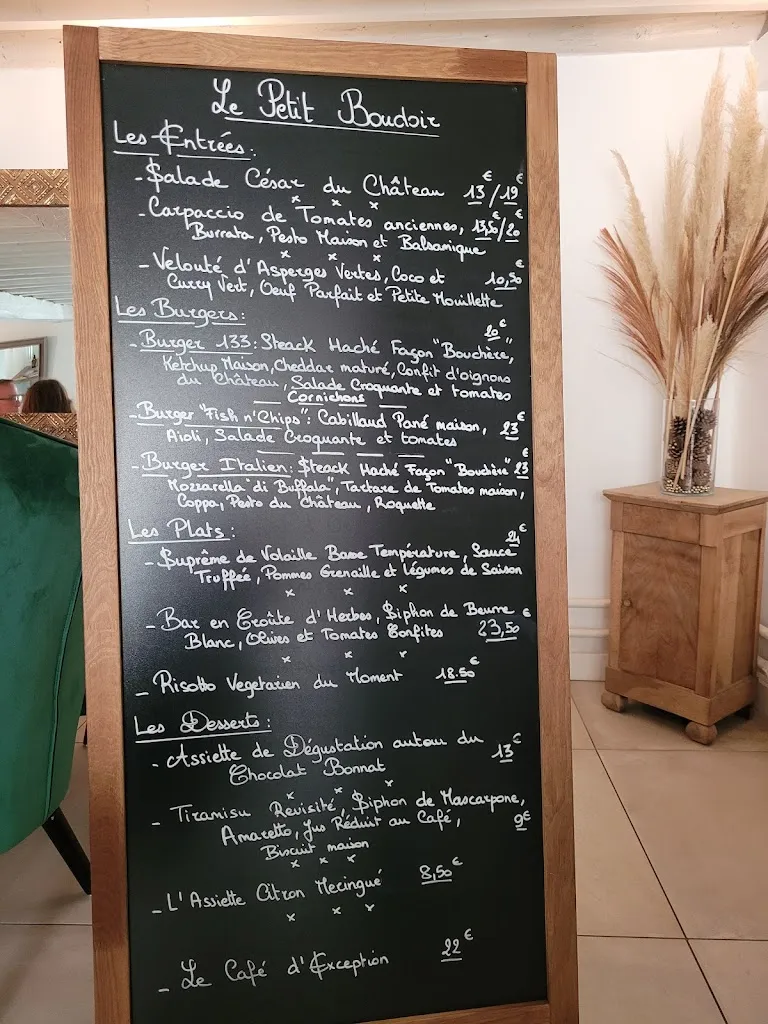 Le Petit Boudoir
Les Entrées:
- Salade César du Château 13€/19€
x x x
- Carpaccio de Tomates anciennes, 13,50€/20€
Burrata, Pesto Maison et Balsamique
x x x
- Velouté d'Asperges Vertes, Coco et 10,50€
Curry Vert, Oeuf Parfait et Petite Mouillette
Les Burgers:
20€
- Burger 133: Steack Haché Façon "Bouchère",
Ketchup Maison, Cheddar maturé, Confit d'oignons
du Château, Salade Croquante et tomates
Cornichons
- Burger "Fish n'Chips": Cabillaud Pané maison, 23€
Aïoli, Salade Croquante et tomates
- Burger Italien: Steack Haché Façon "Bouchère" 23€
Mozzarella "di Buffala", Tartare de Tomates maison,
Coppa, Pesto du Château, Roquette
Les Plats:
24€
- Suprême de Volaille Basse Température, Sauce
Truffée, Pommes Grenaille et légumes de Saison
x x x
- Bar en Croûte d'Herbes, Siphon de Beurre
Blanc, Olives et Tomates Confites 23,50€
x x x
- Risotto Vegetarien du Moment 18.50€
Les Desserts:
- Assiette de Dégustation autour du 13€
Chocolat Bonnat
x x x
- Tiramisu Revisité, Siphon de Mascarpone,
Amaretto, Jus Réduit au Café, 9€
Biscuit maison
x x x
- L'Assiette Citron Meringué 8,50€
x x x
- Le Café d'Exception 22€